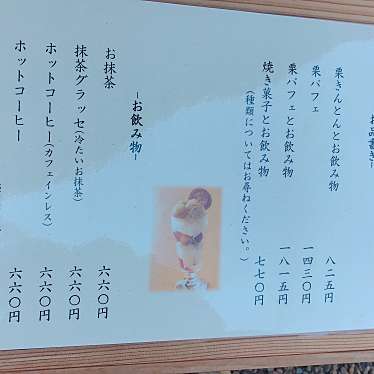 お品書き-
栗きんとんとお飲み物 八二五円
栗パフェ 一四三〇円
栗パフェとお飲み物 一八一五円
焼き菓子とお飲み物 七七〇円
(種類についてはお尋ねください。)
-お飲み物-
お抹茶 六六〇円
抹茶グラッセ(冷たいお抹茶) 六六〇円
ホットコーヒー(カフェインレス) 六六〇円
ホットコーヒー 六六〇円